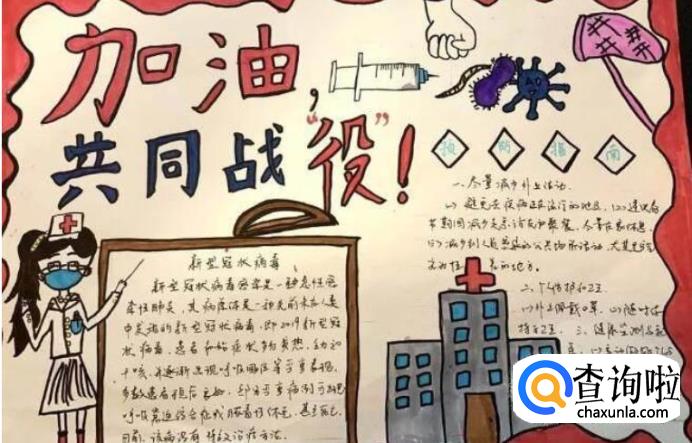 加油，
共同战“役”！
预防指南
一、尽量减少外出活动
(1) 避免去疾病正在流行的地区。(2) 建议春
节期间减少走亲访友和聚餐，尽量在家休息。
(3) 减少到人员密集的公共场所活动，尤其是
的地方。
二、个人防护和卫
(1) 外出佩戴口罩。(2) 随时保
持手卫生 三、健康监测与
新型冠状病毒
新型冠状病毒感染是一种急性感
染性肺炎，其病原体是一种先前未在人类
中发现的新型冠状病毒，即2019新型冠
状病毒。患者初始症状多为发热、乏力和
干咳，并逐渐出现呼吸困难等严重表现。
多数患者预后良好，部分严重病例可出现
呼吸窘迫综合征或脓毒性休克，甚至死亡。
目前，该病没有特效治疗方法。
查询啦
chaxunla.com